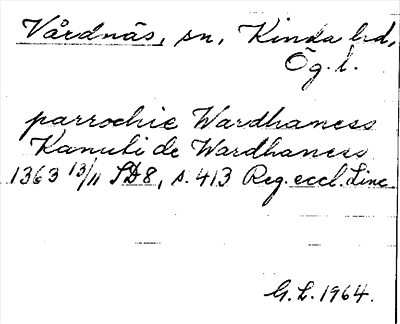 Vårdnäs, sn, Kinda hd,
Ög. l.
parrochie Wardhaness
Kanuti de Wardhaness
1363 13/11 SD8, s. 413 Reg. eccl. Linc
G.L. 1964.